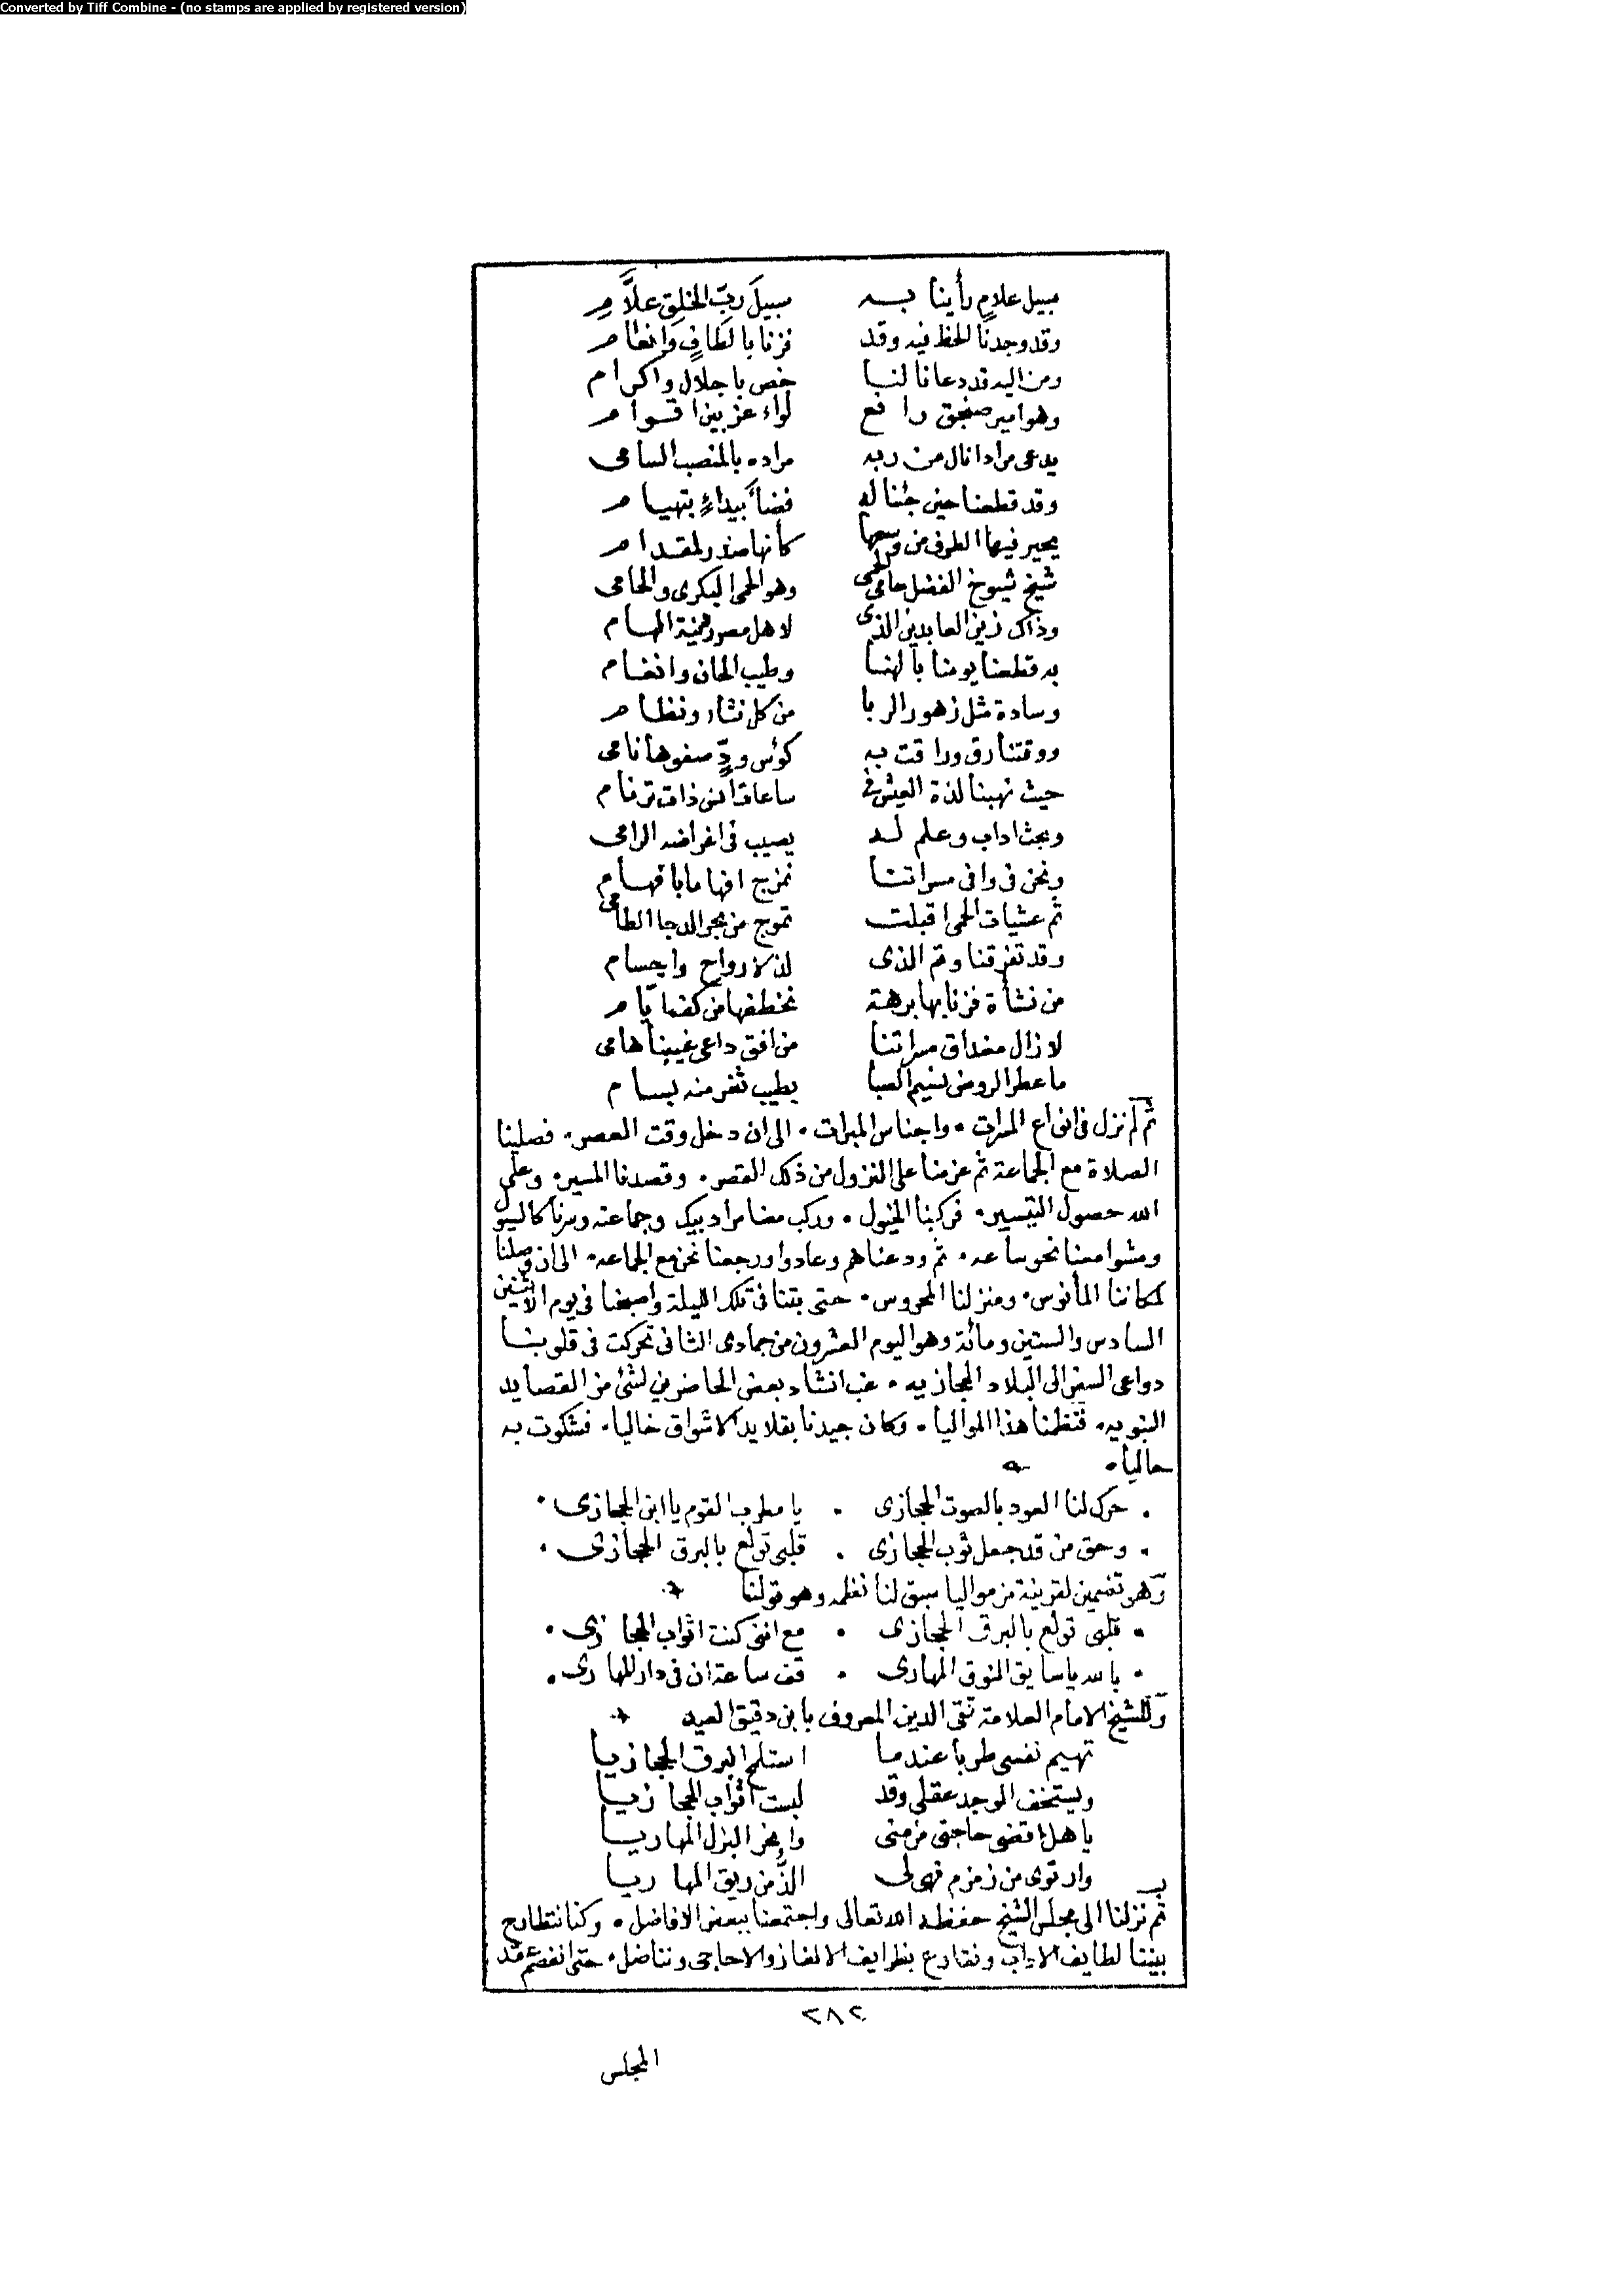 Converted by Tiff Combine - (no stamps are applied by registered version)
سبيل علام رأينا به سبيلَ ربّ الخلق علاَّم
وقد وجدنا للحظ فيه وقد فزنا بالطافٍ وانعام
ومن اليه قد دعانا لنا خص باجلال واكرام
وهو امير صنجق رافع لواء عز بين اقوام
يدعى مرادا نال من ربه مراده بالمنصب السامى
وقد قطعنا حين جئنا له فضاء بيداءٍ بتهيام
يحير فيها الطرف من وسعها كأنها صدر لمقدام
شيخ شيوخ الفضل حامى الحمى وهو الحمى البكرى والحامى
وذاك زين العابدين الذى لاهل مصر الهمام
به قطعنا يومنا بالهنا وطيب الحان وانغام
وسادة مثل زهور الربا من كل نثار ونظام
ووقتنا رق وراقت به كؤس ودٍّ صفوها نامى
حيث نهبنا لذة العيش فى ساعات انس ذات ترنام
وبحث اداب وعلم له يصيب فى اغراضه الرامى
ونحن فى وافى مسراتنا نمزج افهاما بافهام
ثم عشيات الحمى اقبلت تموج من بحر الدجا الطامى
وقد تفرقنا وتم الذى لذ لارواح واجسام
من نشأة فزنا بها برهة نخطفها من كف ايام
لا زال مغداق مسراتنا من افق داعى غيبنا هامى
ما عطر الروض نسيم الصبا بطيب ثغر منه بسام
ثم لم نزل فى انواع المسرات . واجناس المبرات . الى ان دخل وقت العصر . فصلينا
الصلاة مع الجماعة ثم عزمنا على النزول من ذلك القصر . وقصدنا المسير . وعلى
الله حصول التيسير . فركبنا الخيول . وركب معنا مراد بيك وجماعته وسرنا كالسيول
ومشوا معنا نحو ساعه . ثم ودعناهم وعادوا ورجعنا نحن مع الجماعه . الى ان وصلنا
لمكاننا المأنوس . ومنزلنا المحروس . حتى بتنا فى تلك الليلة واصبحنا فى يوم الاثنين
السادس والستين ومائة وهو اليوم العشرون من جمادى الثانى تحركت فى قلوبنا
دواعى السفر الى البلاد الحجازيه . غب انشاد بعض الحاضرين لشئ من القصايد
النبويه . فنظمنا هذا المواليا . وكان جيدنا بقلايد الاشواق خاليا . فشكوت به
حاليا .
. حرك لنا العود بالصوت الحجازى . يا مطرب القوم يا ابن الحجازى .
. وحق من قد جعل ثوب الحجازى . قلبى تولع بالبرق الحجازى .
وهو تضمين لقرينة من مواليا سبق لنا نظمه وهو قولنا
. قلبى تولع بالبرق الحجازى . مع اننى كنت اثواب الحجا زى .
. بالله يا سايق النوق المهارى . قف ساعة ان فى دار للها رى .
وللشيخ الامام العلامة تقى الدين المعروف بابن دقيق العيد
تهيم نفسى طربا عندما استلمح البرق الحجازيا
ويستخف الوجد عقلى وقد لبست اثواب الحجا زيا
يا هل اقضى حاجتى من منى وانحر البزل المهاريا
وارتوى من زمزم فهى لى الذّ من ريق المها ريا
ثم نزلنا الى مجلس الشيخ حفظه الله تعالى واجتمعنا ببعض الافاضل . وكنا نتطارح
بيننا لطايف الاداب ونقارع بظرايف الالغاز والاحاجى ونناضل . حتى انفصم عقد
٢٨٢
المجلس